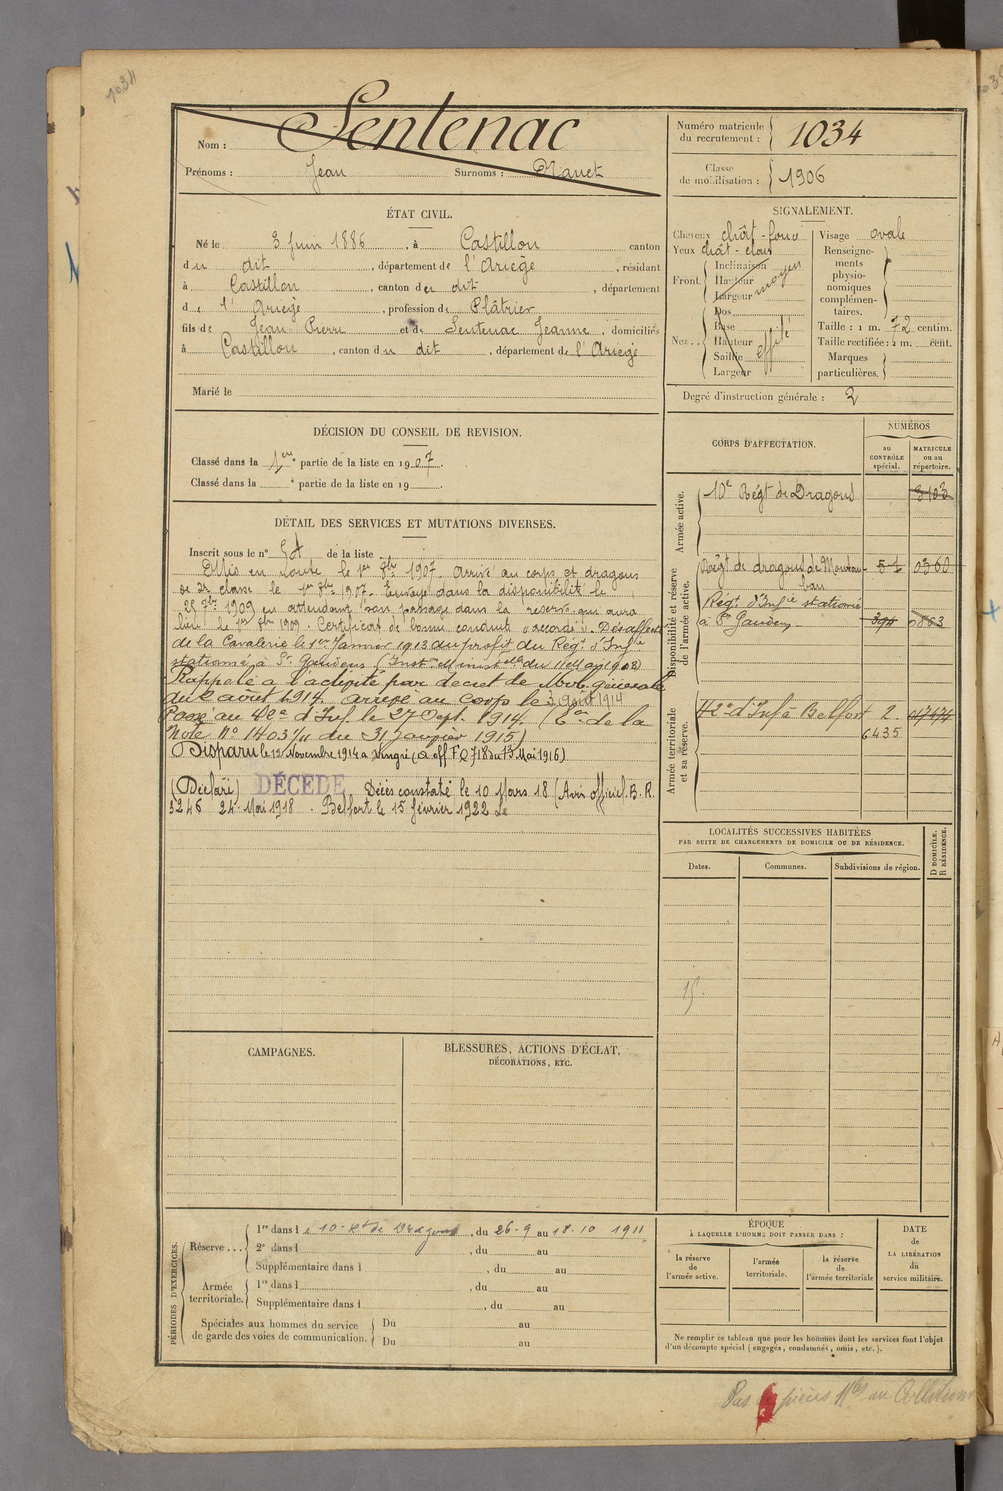 1034
Nom : Sentenac
Prénoms : Jean Surnoms : Manet
ÉTAT CIVIL.
Né le 3 Juin 1886, à Castillon canton
du dit, département de l'Ariège, résidant
à Castillon, canton du dit, département
de l'Ariège, profession de Plâtrier
fils de Jean Pierre et de Sentenac Jeanne, domiciliés
à Castillon, canton du dit, département de l'Ariège
Marié le
DÉCISION DU CONSEIL DE REVISION.
Classé dans la 1ère partie de la liste en 1907.
Classé dans la e partie de la liste en 19
DÉTAIL DES SERVICES ET MUTATIONS DIVERSES.
Inscrit sous le n° 54 de la liste
Mis en route le 1er 8bre 1907. Arrivé au corps et dragons
de 2e classe le 1er 8bre 1907. Envoyé dans la disponibilité le
25 7bre 1909 en attendant son passage dans la réserve qui aura
lieu le 1er 8bre 1909. Certificat de bonne conduite "accordé". Désaffecté
de la Cavalerie le 1er Janvier 1913 au profit du Régt d'Infie
stationné à St Gaudens (Inston Ministelle du 11 Mai 1908)
Rappelé à l'activité par décret de Mobon générale
du 2 août 1914. arrivé au Corps le 3 Août 1914
Passé au 42e d'Inf. le 27 Sept. 1914. (de la
Note N° 1403 du 31 Janvier 1915)
Disparu le 12 Novembre 1914 à Vingré (a off F Q 718 du 13 Mai 1916)
(Déclaré) DÉCÉDÉ Décès constaté le 10 Mars 18 (Avis officiel B. R.
3246 24 Mai 1918. Belfort le 15 février 1922
CAMPAGNES.
BLESSURES, ACTIONS D'ÉCLAT,
DÉCORATIONS, ETC.
PÉRIODES D'EXERCICES.
Réserve... 1re dans le 10e Rt de Dragons, du 26-9 au 18-10 1911
2e dans l , du au
Supplémentaire dans l , du au
Armée territoriale. 1re dans l , du au
Supplémentaire dans l , du au
Spéciales aux hommes du service Du au
de garde des voies de communication. Du au
Numéro matricule du recrutement : 1034
Classe de mobilisation : 1906
SIGNALEMENT.
Cheveux chât-foncé
Yeux chât-clair
Front. Inclinaison
Hauteur moyen
Largeur
Nez.. Dos
Base
Hauteur effilé
Saillie
Largeur
Visage ovale
Renseignements physionomiques complémentaires.
Taille : 1 m. 72 centim.
Taille rectifiée : 1 m. cent.
Marques particulières.
Degré d'instruction générale : 2
CORPS D'AFFECTATION.
NUMÉROS
au CONTRÔLE spécial.
MATRICULE ou au répertoire.
Armée active.
10e Régt de Dragons 3103
Disponibilité et réserve de l'armée active.
Régt de dragons de Montauban 51 0360
Régt d'Infie stationné
à St Gaudens 394 0863
Armée territoriale et sa réserve.
42e d'Inf à Belfort 2.
6435
LOCALITÉS SUCCESSIVES HABITÉES
PAR SUITE DE CHANGEMENTS DE DOMICILE OU DE RÉSIDENCE.
Dates. Communes. Subdivisions de région.
D DOMICILE.
R RÉSIDENCE.
15.
ÉPOQUE
À LAQUELLE L'HOMME DOIT PASSER DANS :
la réserve de l'armée active.
l'armée territoriale.
la réserve de l'armée territoriale
DATE de LA LIBÉRATION du service militaire.
Ne remplir ce tableau que pour les hommes dont les services font l'objet
d'un décompte spécial (engagés, condamnés, omis, etc.).
Pas pièces au